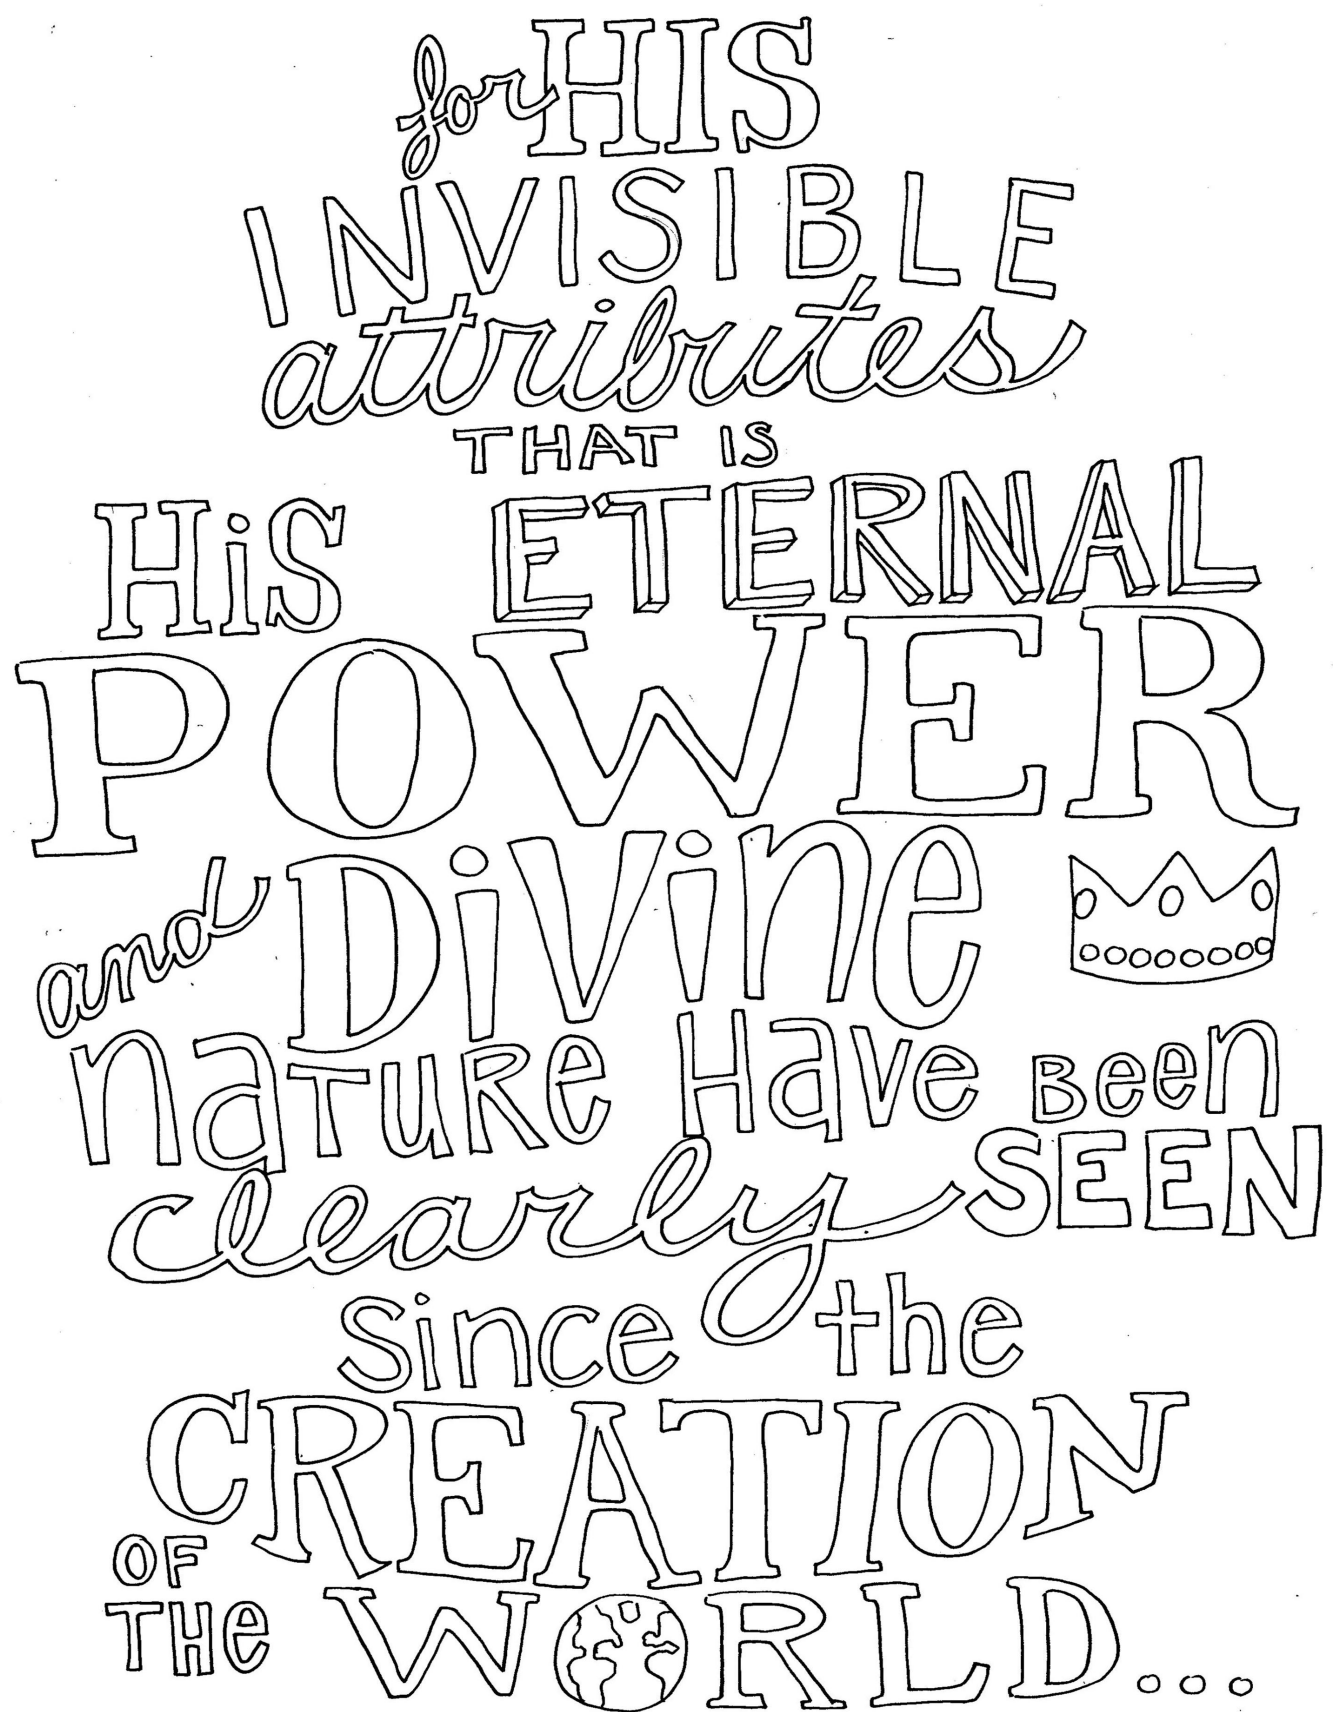 for HIS
INVISIBLE
attributes
THAT IS
HiS ETERNAL
POWER
and DiVine
naTuRe Have Been
clearly SEEN
since the
CREATION
OF
THe WORLD...